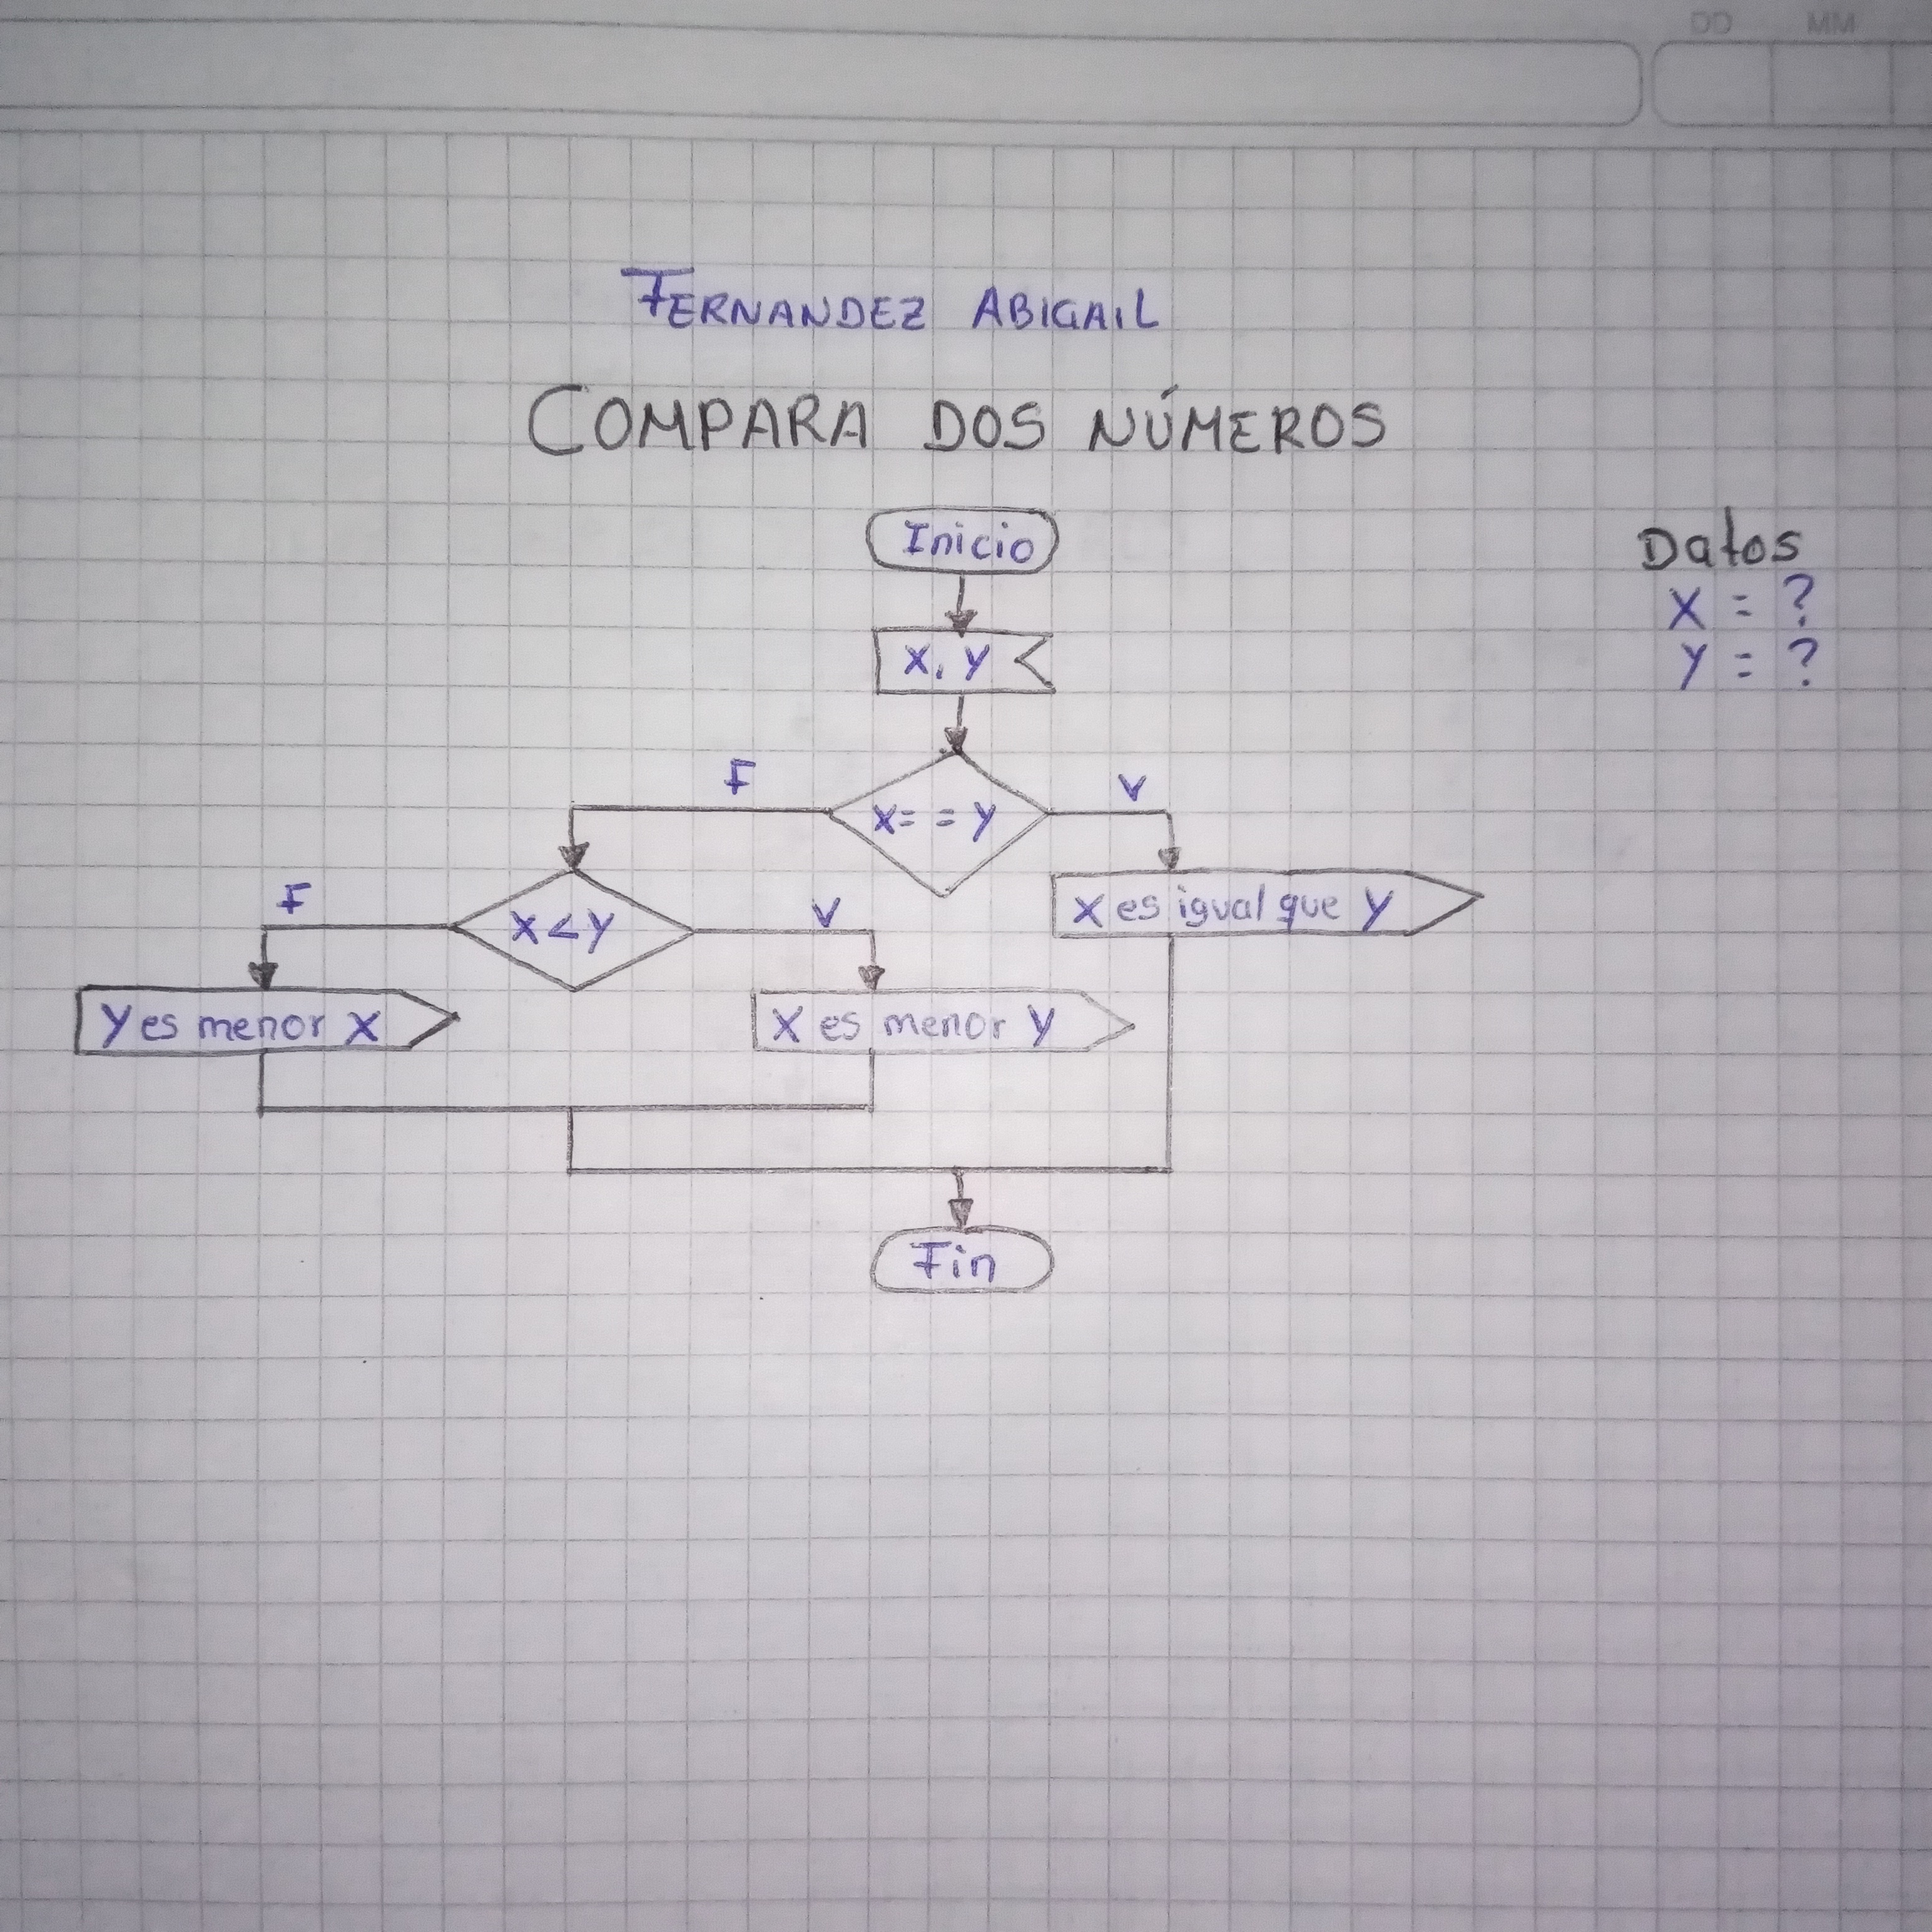 DD MM
FERNANDEZ ABIGAIL
COMPARA DOS NÚMEROS
Inicio
Datos
X = ?
Y = ?
X, Y
F
V
X= = Y
F
X < Y
V
X es igual que Y
Y es menor X
X es menor Y
Fin